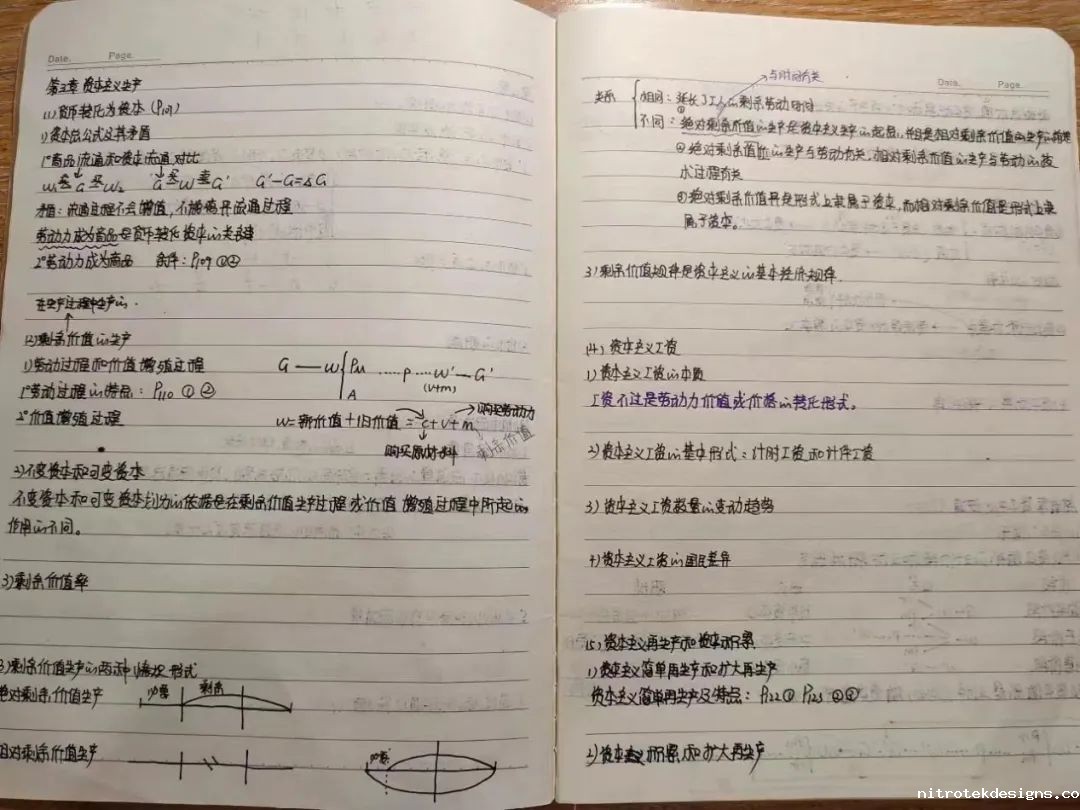 Date.  Page.
第3章 资本主义生产
(1) 货币转化为资本 (P101)
1) 资本总公式及其矛盾
1°商品流通和资本流通对比
W₁ G W₂  G W G'  G'-G=ΔG
矛盾:流通过程不会增值,不能离开流通过程
劳动力成为商品是货币转化资本的关键
2°劳动力成为商品  条件:P109 ①②
在生产过程中生产的
(2) 剩余价值的生产
1) 劳动过程和价值增殖过程
G — W { Pm A ...... P ...... W' — G'
(v+m)
1°劳动过程的特点: P110 ① ②
2°价值增殖过程
W=新价值+旧价值=c+v+m
购买劳动力
购买原材料
剩余价值
2) 不变资本和可变资本
不变资本和可变资本划分的依据是在剩余价值生产过程或价值增殖过程中所起的
作用的不同。
3) 剩余价值率
3) 剩余价值生产的两种基本形式
绝对剩余价值生产
必要 剩余
相对剩余价值生产
必要
Date.  Page.
与时间有关
关系
相同:延长了工人的剩余劳动时间
不同:①绝对剩余价值的生产是资本主义生产的起点,并且是相对剩余价值的生产的
②绝对剩余价值的生产与劳动有关,相对剩余价值的生产与劳动的技
术过程有关
③绝对剩余价值是形式上隶属于资本,而相对剩余价值是形式上隶
属于资本。
3) 剩余价值规律是资本主义的基本经济规律.
(4) 资本主义工资
1) 资本主义工资的本质
工资不过是劳动力价值或价格的转化形式。
2) 资本主义工资的基本形式:计时工资和计件工资
3) 资本主义工资数量的变动趋势
4) 资本主义工资的国民差异
(5) 资本主义再生产和资本积累
1) 资本主义简单再生产和扩大再生产
资本主义简单再生产及特点: P122① P123 ②③
2) 资本主义积累和扩大再生产
nitrotekdesigns.co